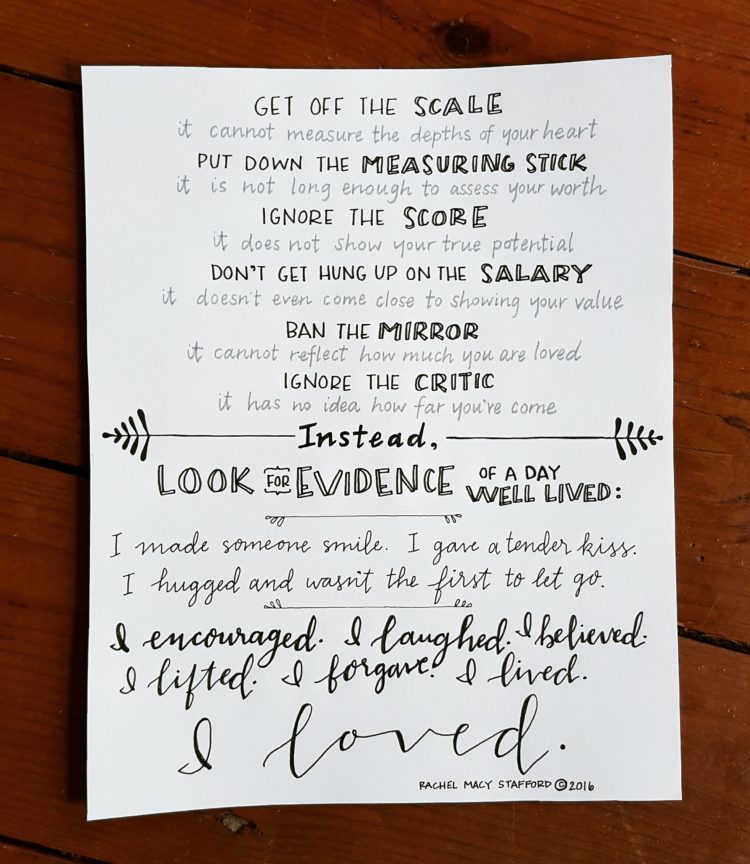 GET OFF THE SCALE
it cannot measure the depths of your heart
PUT DOWN THE MEASURING STICK
it is not long enough to assess your worth
IGNORE THE SCORE
it does not show your true potential
DON'T GET HUNG UP ON THE SALARY
it doesn't even come close to showing your value
BAN THE MIRROR
it cannot reflect how much you are loved
IGNORE THE CRITIC
it has no idea how far you've come
Instead,
LOOK FOR EVIDENCE OF A DAY WELL LIVED:
I made someone smile. I gave a tender kiss.
I hugged and wasn't the first to let go.
I encouraged. I laughed. I believed.
I lifted. I forgave. I lived.
I loved.
RACHEL MACY STAFFORD © 2016